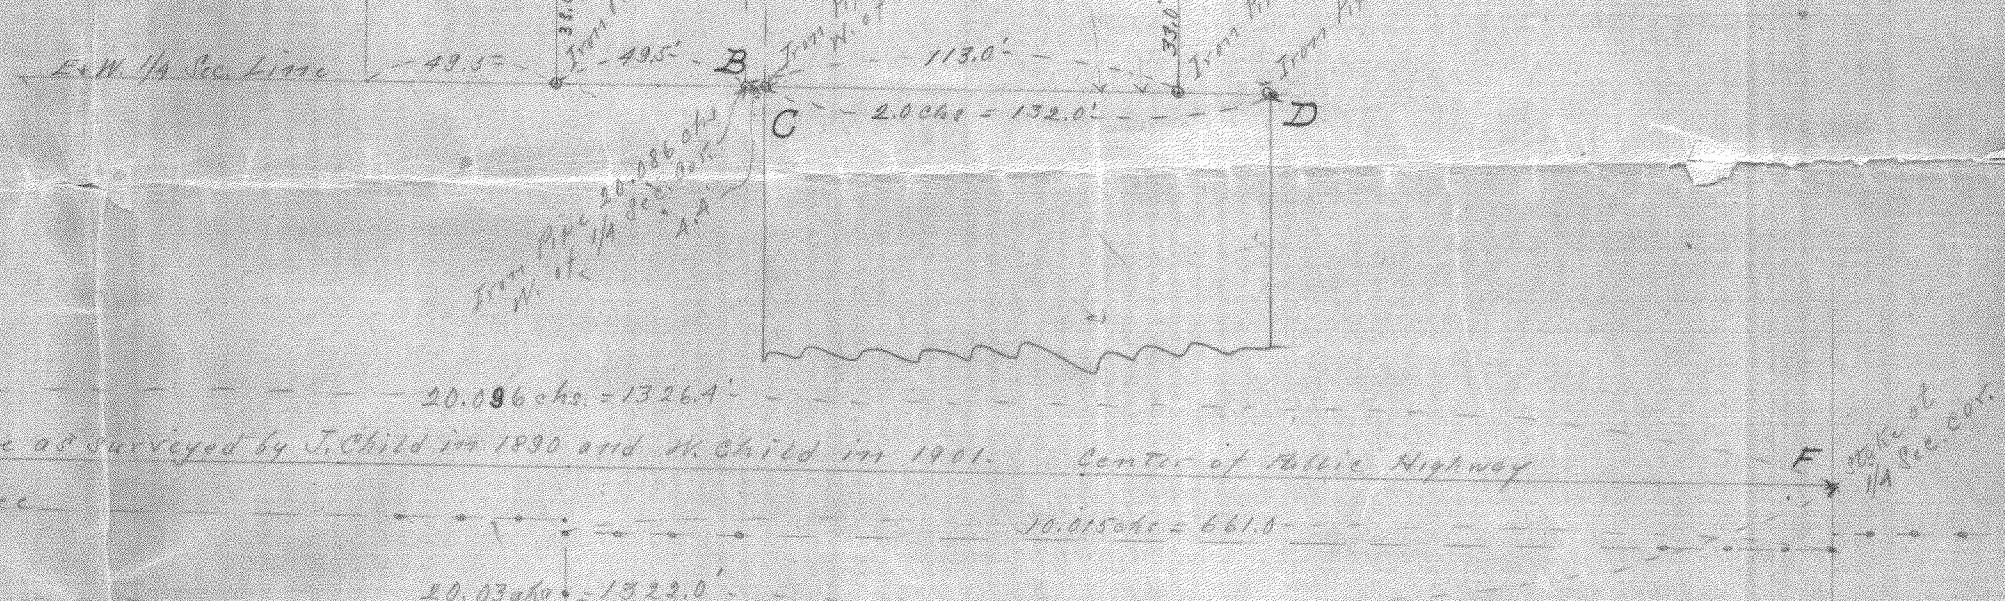 33.0
Iron
Iron
W. of
33.0'
Iron
Iron
E & W. 1/4 Sec. Line
49.5
49.5'
B
113.0'
C
2.0 chs = 132.0'
D
Iron Pipe 20.086 chs
W. of 1/4 Sec. Cor.
20.096 chs. = 1326.4'
as surveyed by J. Child in 1890 and W. Child in 1901.
Center of Public Highway
F
Stake at
1/4 Sec. cor.
10.015 chs = 661.0
20.03 chs = 1322.0'